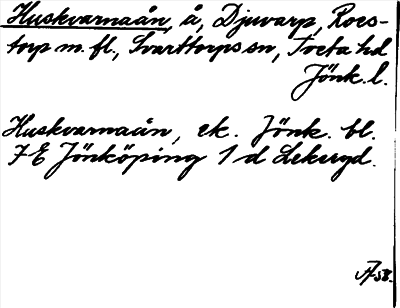 Huskvarnaån, å, Djuvarp, Roes-
torp m. fl., Svarttorps sn, Tveta hd
Jönk. l.
Huskvarnaån, ek. Jönk. bl.
7 E Jönköping 1 d Lekeryd.